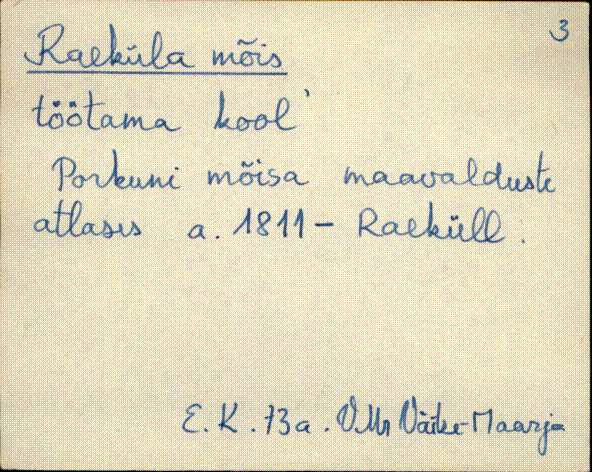 3
Raeküla mõis
töötama kool'
Porkuni mõisa maavalduste
atlases a. 1811 - Raeküll.
E. K. 73 a. V.Mr Väike-Maarja